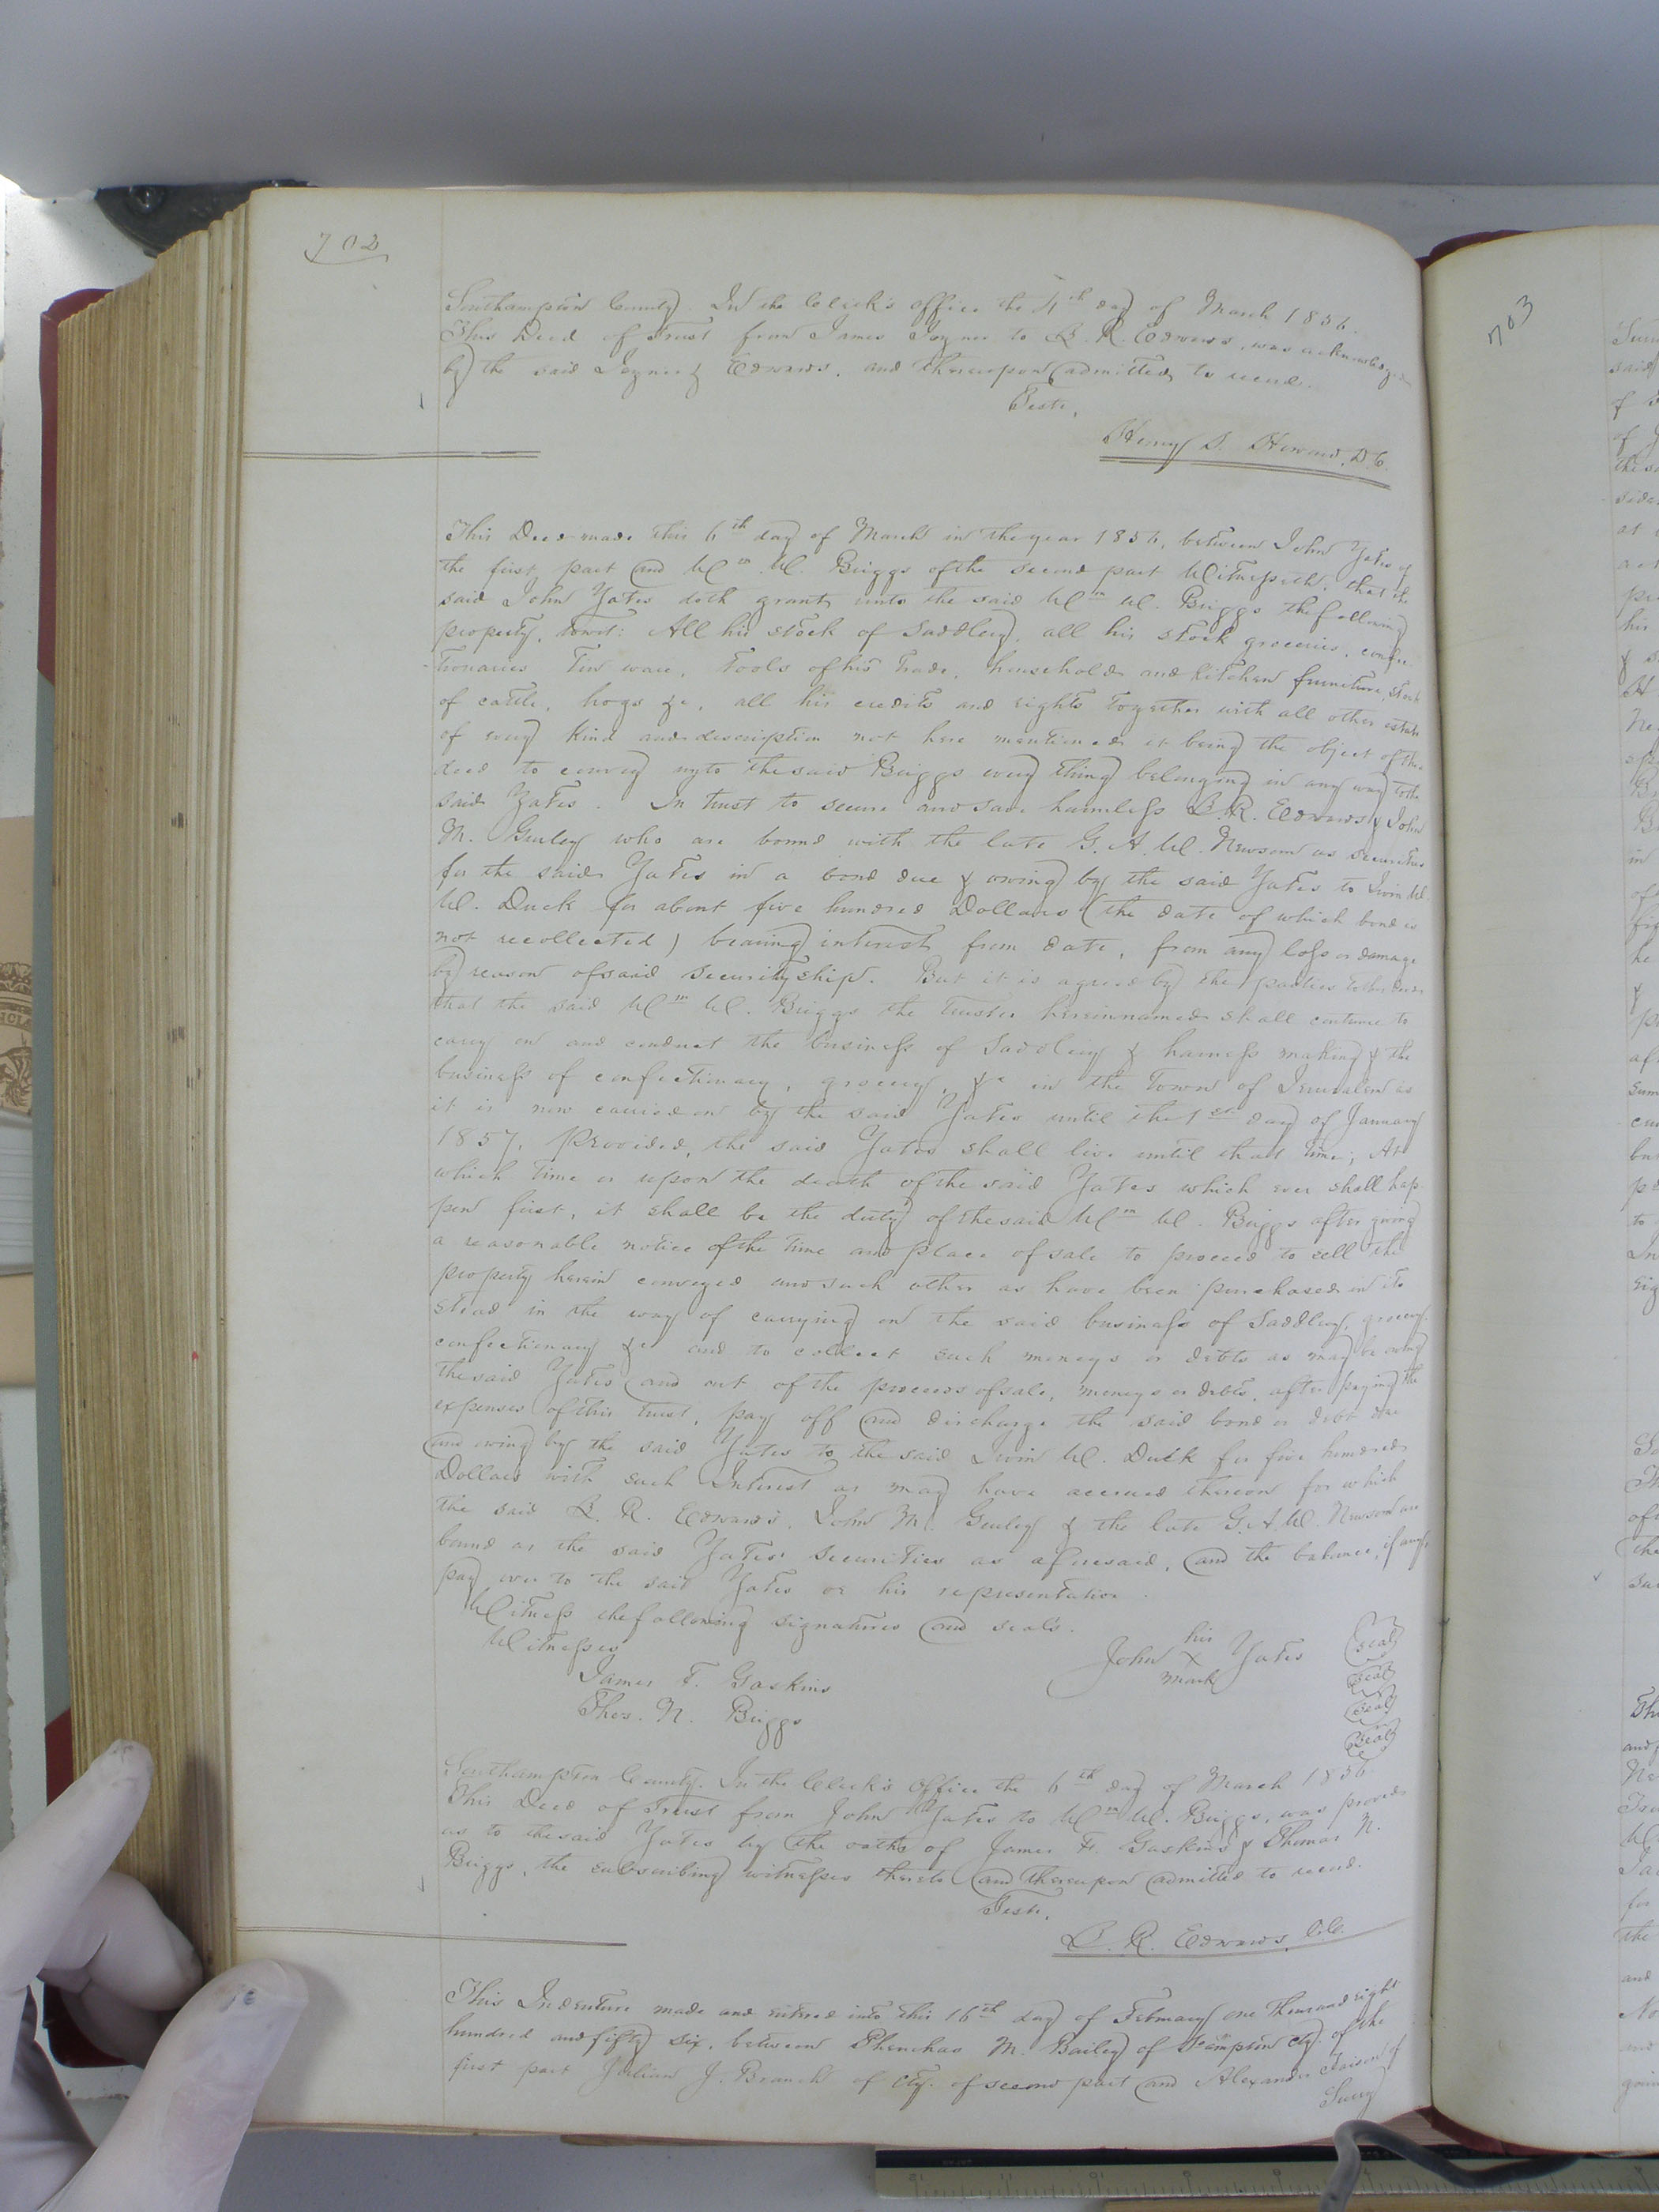 702
Southampton County. In the Clerk's office the 4th day of March 1856.
This Deed of Trust from James Joyner to L. R. Edwards, was acknowledged
by the said Joyner & Edwards, and thereupon admitted to record.
Teste,
Henry S. Howard, D.C.
This Deed made this 6th day of March in the year 1856, between John Yates of
the first part and Wm W. Briggs of the second part Witnesseth, that the
said John Yates doth grant unto the said Wm W. Briggs the following
property, towit: All his stock of Saddlery, all his stock groceries, confec-
-tionaries Tin ware, Tools of his Trade, household and kitchen furniture, stock
of cattle, hogs &c, all his credits and rights together with all other estate
of every kind and description not here mentioned it being the object of this
deed to convey unto the said Briggs every thing belonging in any way to the
said Yates. In trust to secure and save harmless L. R. Edwards & John
M. Gurley who are bound with the late G. A. W. Newsom as securities
for the said Yates in a bond due & owing by the said Yates to Irvin W.
W. Duck for about five hundred Dollars (the date of which bond is
not recollected) bearing interest from date, from any loss or damage
by reason of said securityship. But it is agreed by the parties to this deed
that the said Wm W. Briggs the Trustee herein named shall continue to
carry on and conduct the business of Saddlery & harness making & the
business of confectionary, grocery, &c in the Town of Jerusalem as
it is now carried on by the said Yates until the 1st day of January
1857, Provided, the said Yates shall live until that time; At
which time or upon the death of the said Yates which ever shall hap-
pen first, it shall be the duty of the said Wm W. Briggs after giving
a reasonable notice of the time and place of sale to proceed to sell the
property herein conveyed and such other as have been purchased in its
stead in the way of carrying on the said business of Saddlery, grocery,
confectionary &c and to collect such moneys or debts as may be owing
the said Yates and out of the proceeds of sale, moneys or debts, after paying the
expenses of this trust, pay off and discharge the said bond or debt due
and owing by the said Yates to the said Irvin W. Duck for five hundred
Dollars with such Interest as may have accrued thereon for which
the said L. R. Edwards, John M. Gurley & the late G. A. W. Newsom are
bound as the said Yates' securities as aforesaid, and the balance, if any,
pay over to the said Yates or his representation.
Witness the following signatures and seals.
Witnesses
his
John X Yates (seal)
mark
James F. Gaskins (seal)
Thos. N. Briggs (seal)
(seal)
Southampton County. In the Clerk's Office the 6th day of March 1856.
This Deed of Trust from John Yates to Wm W. Briggs, was proved
as to the said Yates by the oaths of James F. Gaskins & Thomas N.
Briggs, the subscribing witnesses thereto and thereupon admitted to record.
Teste,
L. R. Edwards, C.C.
This Indenture made and entered into this 16th day of February one Thousand eight
hundred and fifty six, between Phenehas M. Bailey of S.ampton Cty. of the
first part Julian J. Branch of Cty. of second part and Alexander Faison of
Surry
703